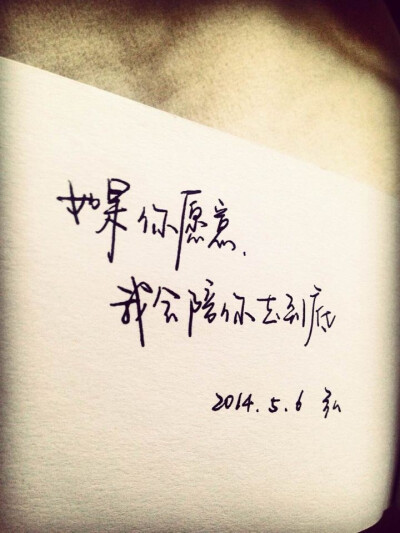 如果你愿意，
我会陪你去到底
2014.5.6 弘